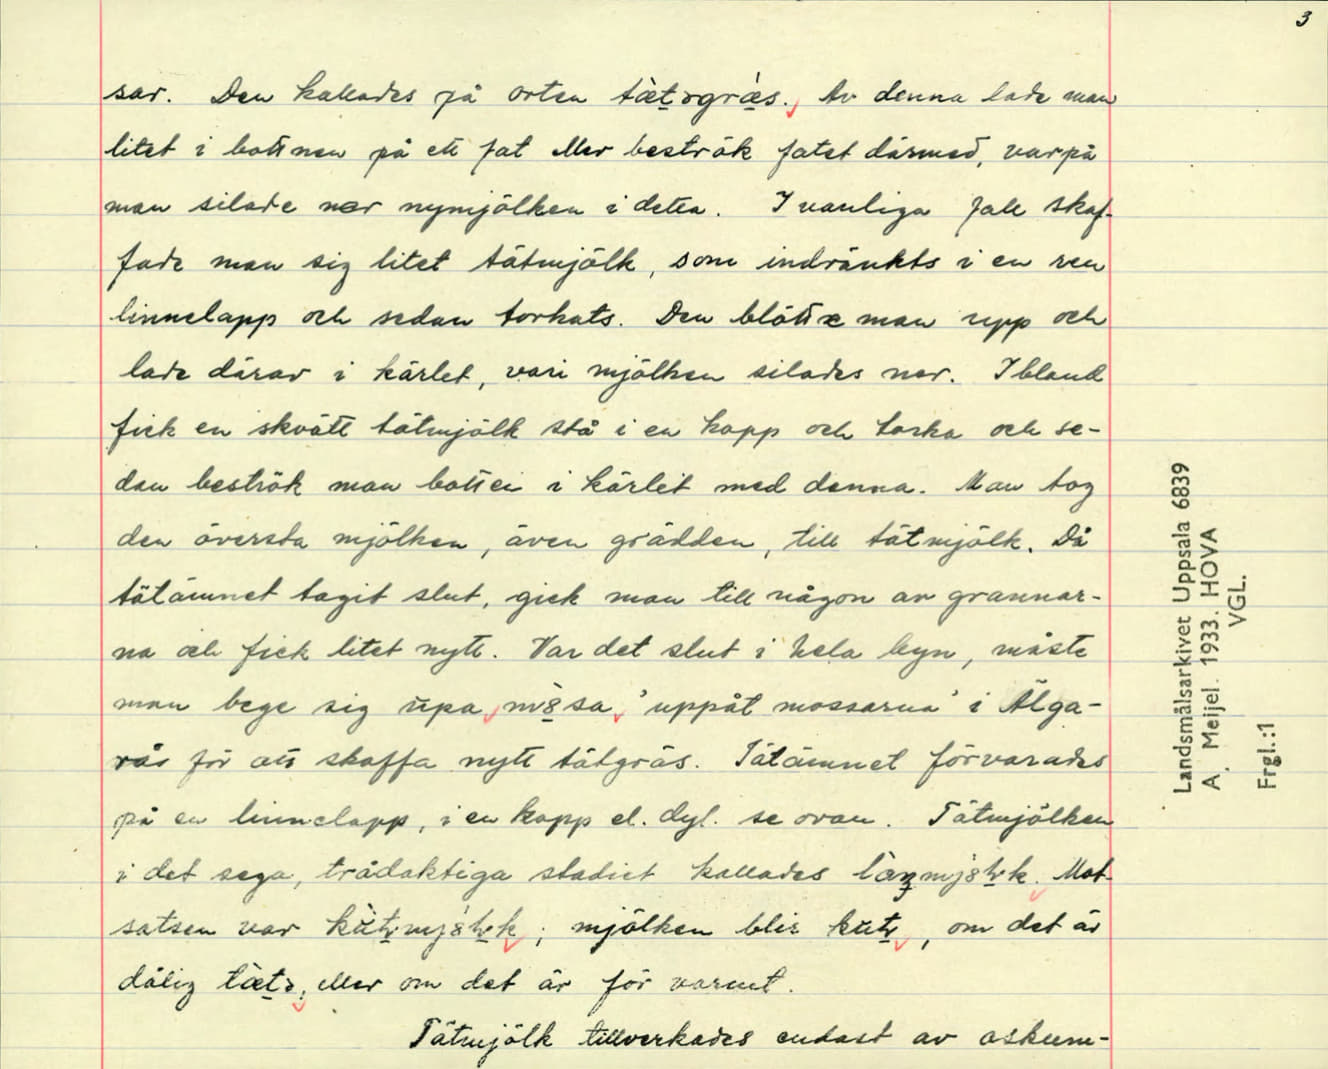 3
sar. Den kallades på orten tæ̀təgræ̀s. Av denna lade man
litet i bottnen på ett fat eller beströk fatet därmed, varpå
man silade ner nymjölken i detta. I vanliga fall skaf-
fade man sig litet tätmjölk, som indränkts i en ren
linnelapp och sedan torkats. Den blötte man upp och
lade därav i kärlet, vari mjölken silades ner. Ibland
fick en skvätt tätmjölk stå i en kopp och torka och se-
dan beströk man botten i kärlet med denna. Man tog
den översta mjölken, även grädden, till tätmjölk. Då
tätämnet tagit slut, gick man till någon av grannar-
na och fick litet nytt. Var det slut i hela byn, måste
man bege sig ùpa mɷ̀sa 'uppåt mossarna' i Älga-
rås för att skaffa nytt tätgräs. Tätämnet förvarades
på en linnelapp, i en kopp el. dyl. se ovan. Tätmjölken
i det sega, trådaktiga stadiet kallades Mot-
satsen var ; mjölken blir , om det är
dålig tæ̀tə, eller om det är för varmt.
Tätmjölk tillverkades endast av oskum-
Landsmålsarkivet Uppsala 6839
A. Meijel. 1933. HOVA
VGL.
Frgl.:1